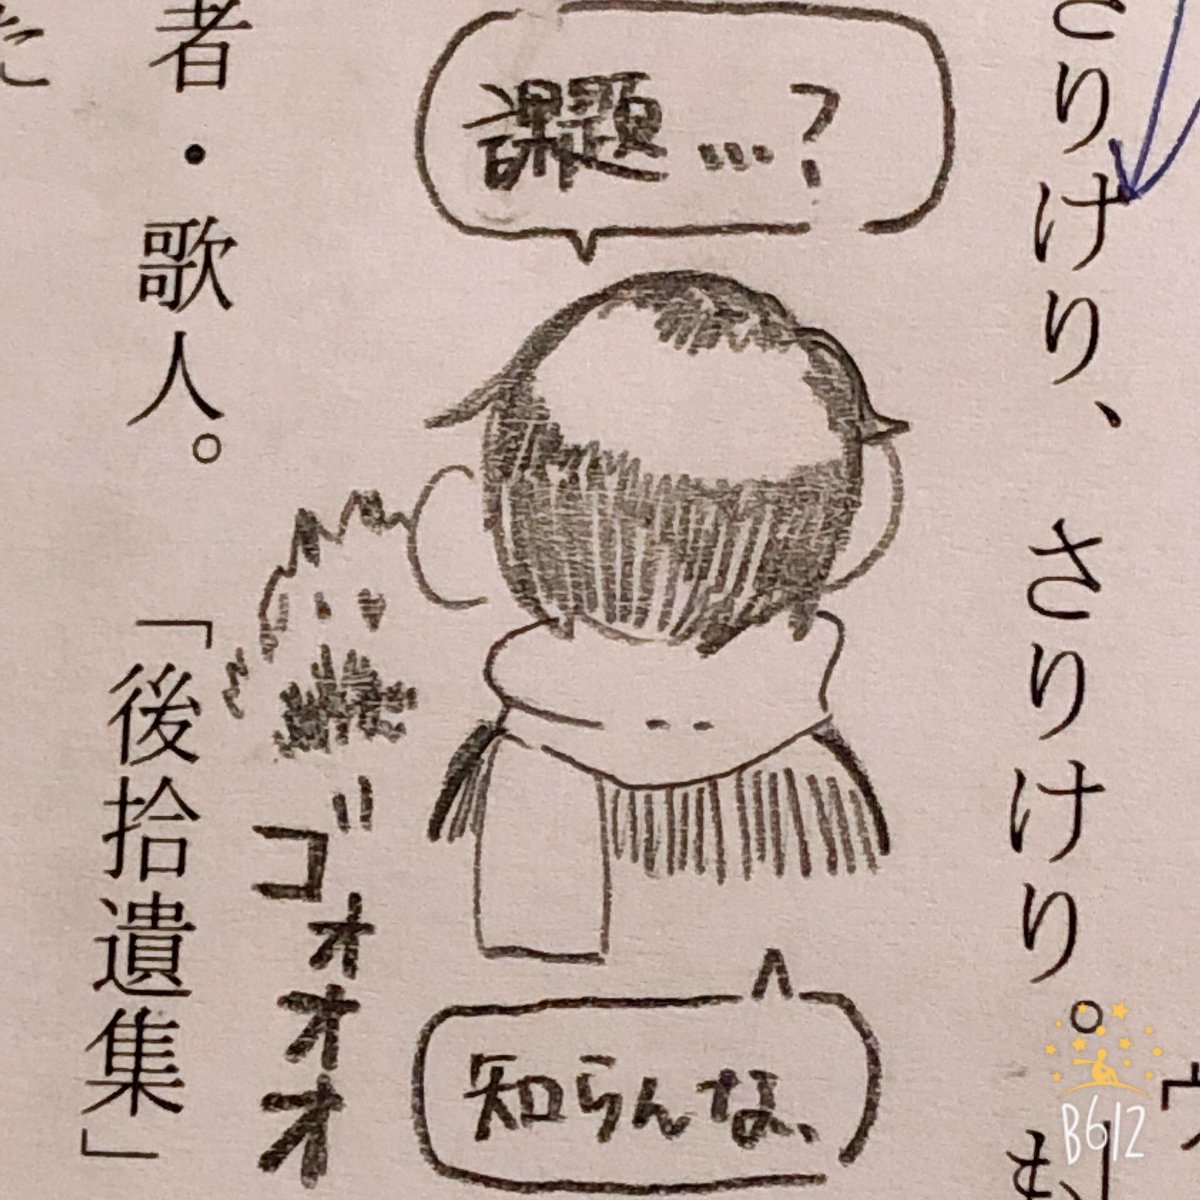 さりけり、さりけり。
課題…?
知らんな、
ゴオオオ
者・歌人。「後拾遺集」
B612